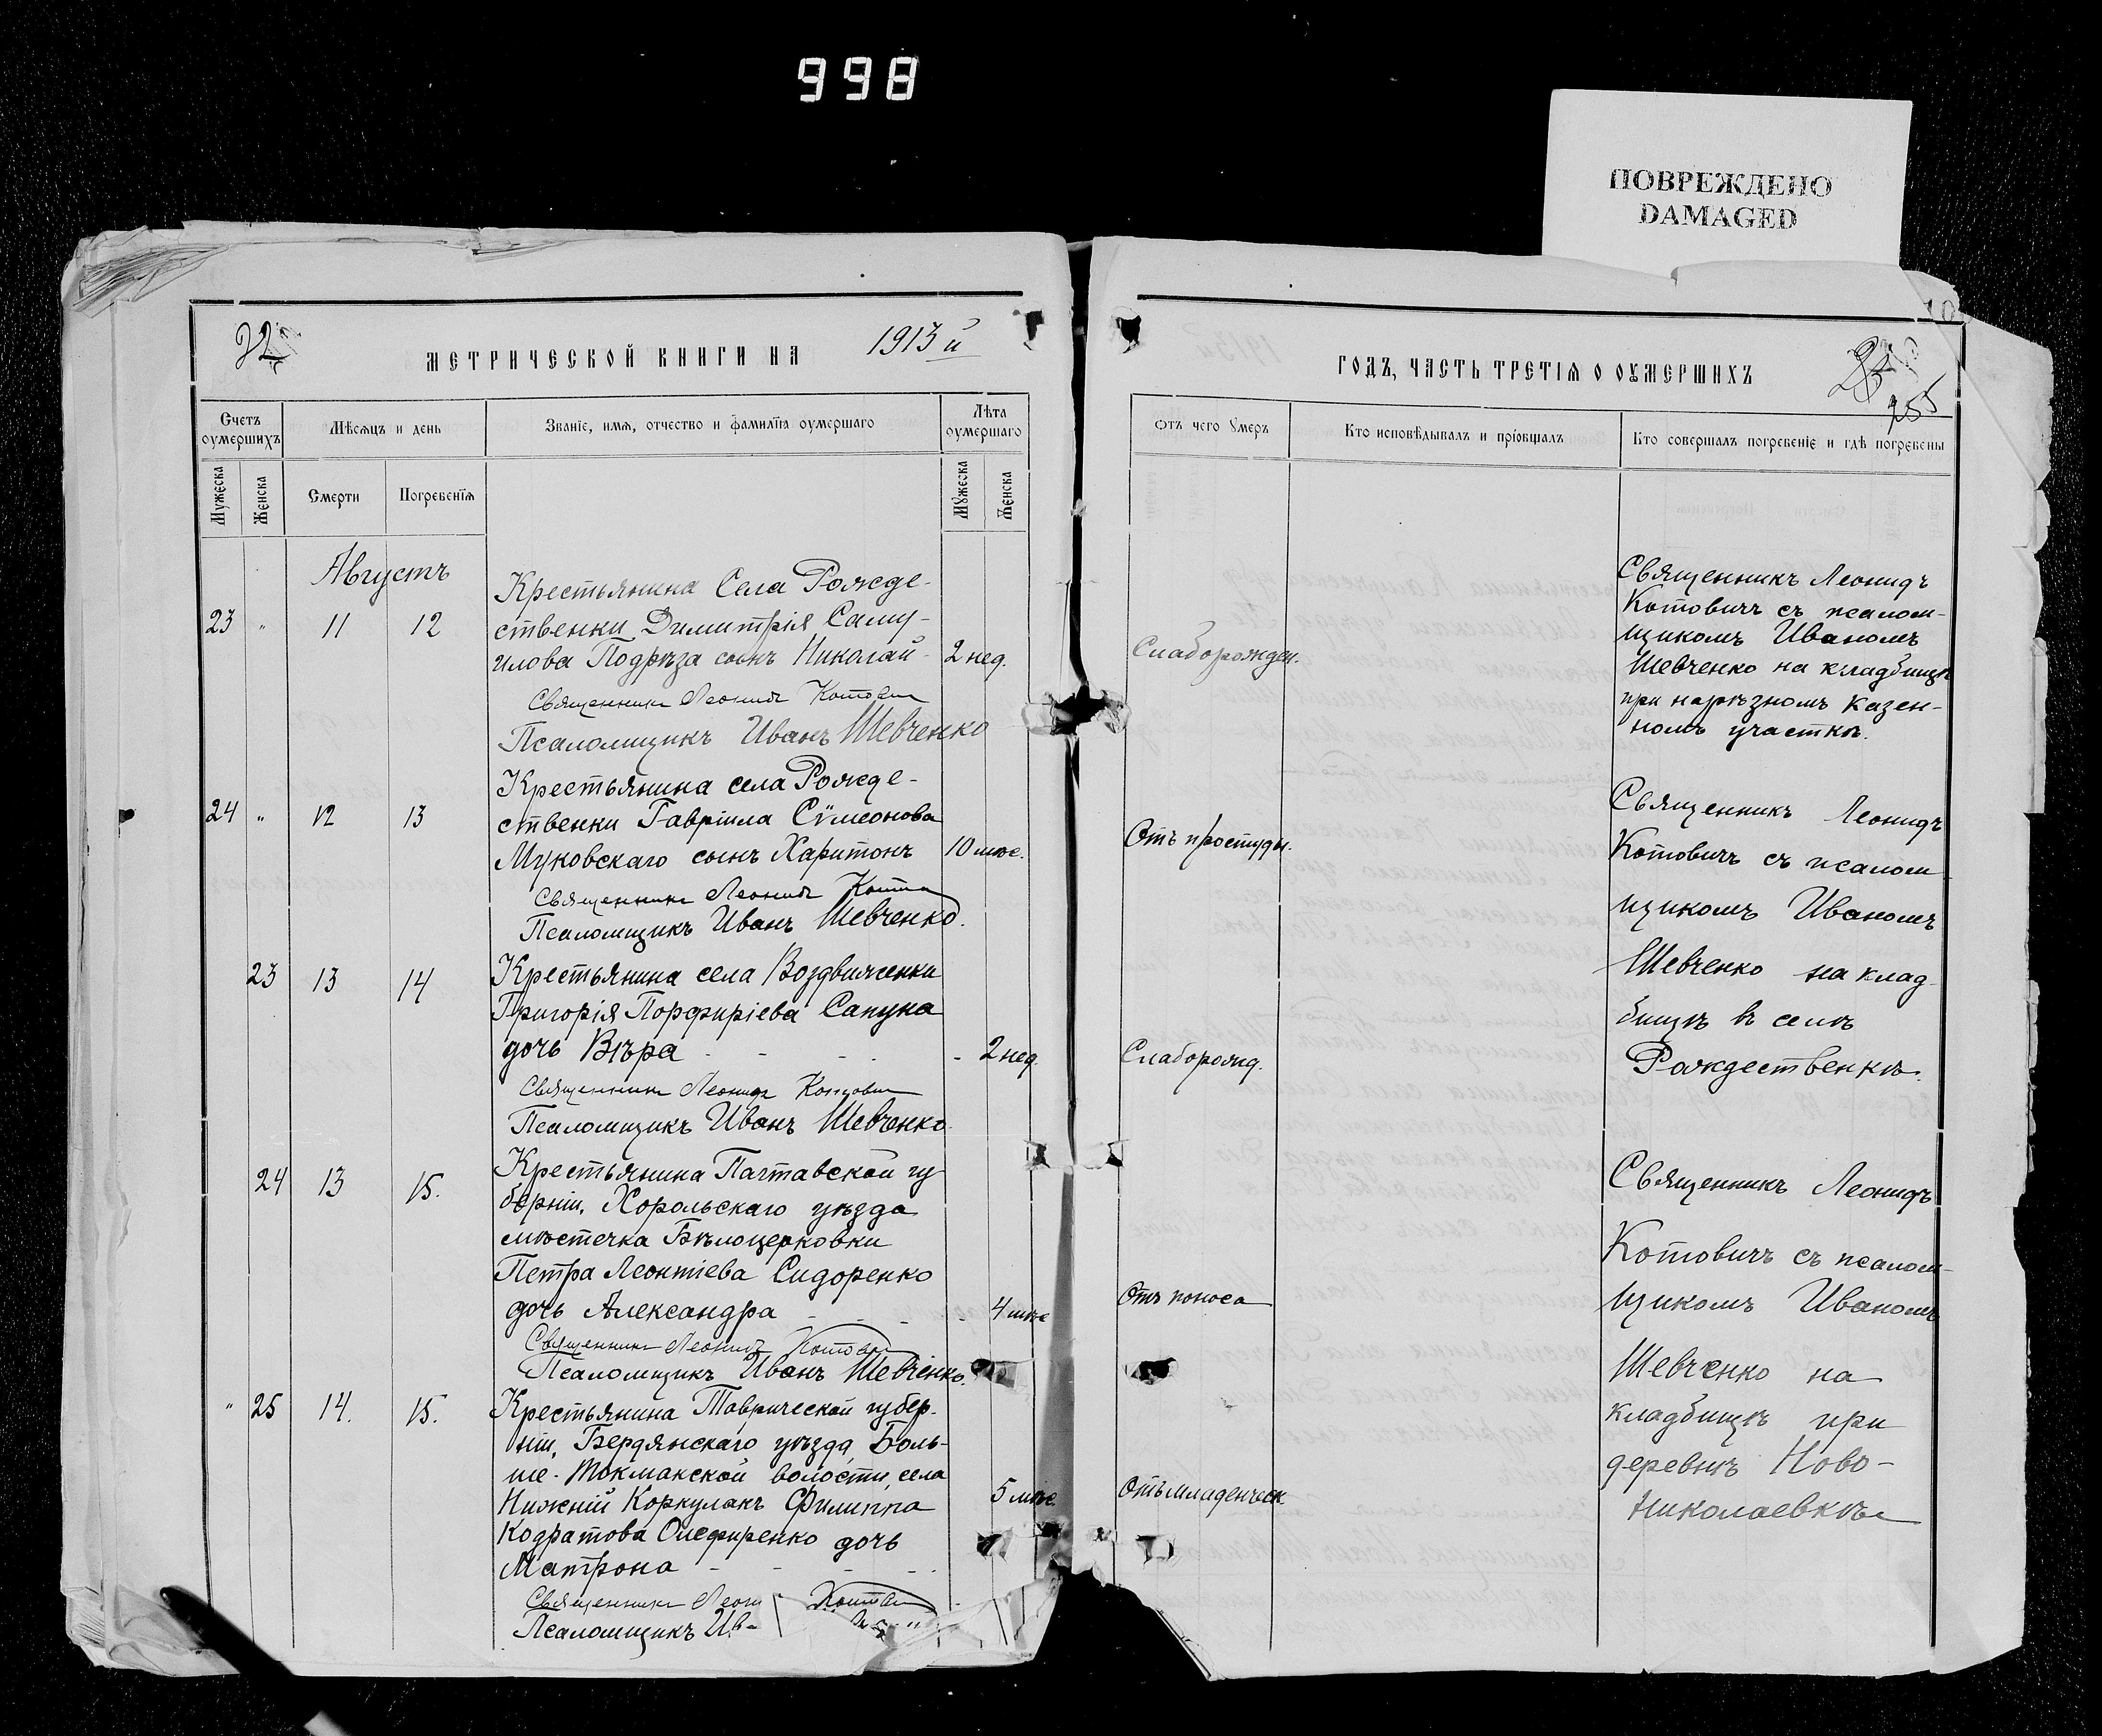 998
ПОВРЕЖДЕНО
DAMAGED
32
МЕТРИЧЕСКОЙ КНИГИ НА
1913 й
Счетъ оумершихъ
Мѣсяцъ и день
Званіе, имя, отчество и фамилія оумершаго
Лѣта оумершаго
Мужеска
Женска
Смерти
Погребенія
Мужеска
Женска
Августъ
23 " 11 12
Крестьянина Села Рожде-
ственки Димитрія Саму-
илова Подрѣза сынъ Николай - 2 нед.
Священникъ Леонидъ Котович
Псаломщикъ Иванъ Шевченко
24 " 12 13
Крестьянина села Рожде-
ственки Гавріила Сѵмеонова
Муковскаго сынъ Харитонъ 10 мѣс.
Священникъ Леонидъ
Псаломщикъ Иванъ Шевченко.
23 13 14
Крестьянина села Воздвиженки
Григорія Порфиріева Сапуна
дочь Вѣра - - - - - 2 нед.
Священникъ Леонидъ Котович
Псаломщикъ Иванъ Шевченко
24 13 15.
Крестьянина Палтавской гу
берніи, Хорольскаго уѣзда
мѣстечка Бѣлоцерковки
Петра Леонтіева Сидоренко
дочь Александра - - - - - 4 мѣс
Священникъ Леонидъ Котович
Псаломщикъ Иванъ Шевченко.
" 25 14. 15.
Крестьянина Таврической губер-
ніи, Бердянскаго уѣзда, Боль-
ше-Токмакской волости, села
Нижній Коркулакъ Филиппа 5 мѣс.
Кодратова Олефиренко дочь
Матрона - - - - -
Священникъ
Псаломщикъ
ГОДЪ, ЧАСТЬ ТРЕТІЯ О ОУМЕРШИХЪ
255
10
Отъ чего умеръ
Кто исповѣдывалъ и пріобщалъ
Кто совершалъ погребеніе и гдѣ погребены
Слаборожден.
Священникъ Леонидъ
Котовичъ съ псалом-
щикомъ Иваномъ
Шевченко на кладбищѣ
при нарѣзномъ казен-
номъ участкѣ.
Отъ простуды.
Слаборожд.
Священникъ Леонидъ
Котовичъ съ псалом
щикомъ Иваномъ
Шевченко на клад-
бищѣ въ селѣ
Рождественкѣ.
Отъ поноса
Отъ младенческ
Священникъ Леонидъ
Котовичъ съ псалом-
щикомъ Иваномъ
Шевченко на
кладбищѣ при
деревнѣ Ново-
Николаевкѣ